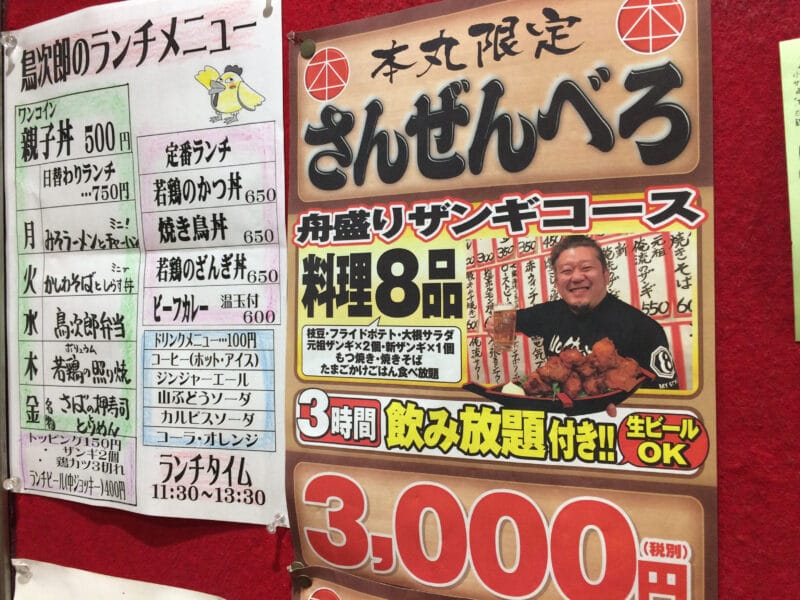 鳥次郎のランチメニュー
ワンコイン
親子丼 500円
日替わりランチ
…750円
月 ミニ!
みそラーメンとチャーハン
火 ミニ
かしわそばとしらす丼
水 鳥次郎弁当
木 ボリュウム
若鶏の照り焼
金 名物 さばの押寿司
とらめん
トッピング150円
・ザンギ2個
・鶏カツ3切れ
ランチビール(中ジョッキー)400円
定番ランチ
若鶏のかつ丼 650
焼き鳥丼 650
若鶏のざんぎ丼 650
ビーフカレー 温玉付 600
ドリンクメニュー…100円
コーヒー(ホット・アイス)
ジンジャーエール
山ぶどうソーダ
カルピスソーダ
コーラ・オレンジ
ランチタイム
11:30~13:30
本 本丸限定 本
さんぜんべろ
舟盛りザンギコース
料理8品
枝豆・フライドポテト・大根サラダ
元祖ザンギ×2個・新ザンギ×1個
もつ焼き・焼きそば
たまごかけごはん食べ放題
焼きそば
550
元祖
俺流ザンギ
650
3時間 飲み放題付き!! 生ビールOK
3,000円
(税別)